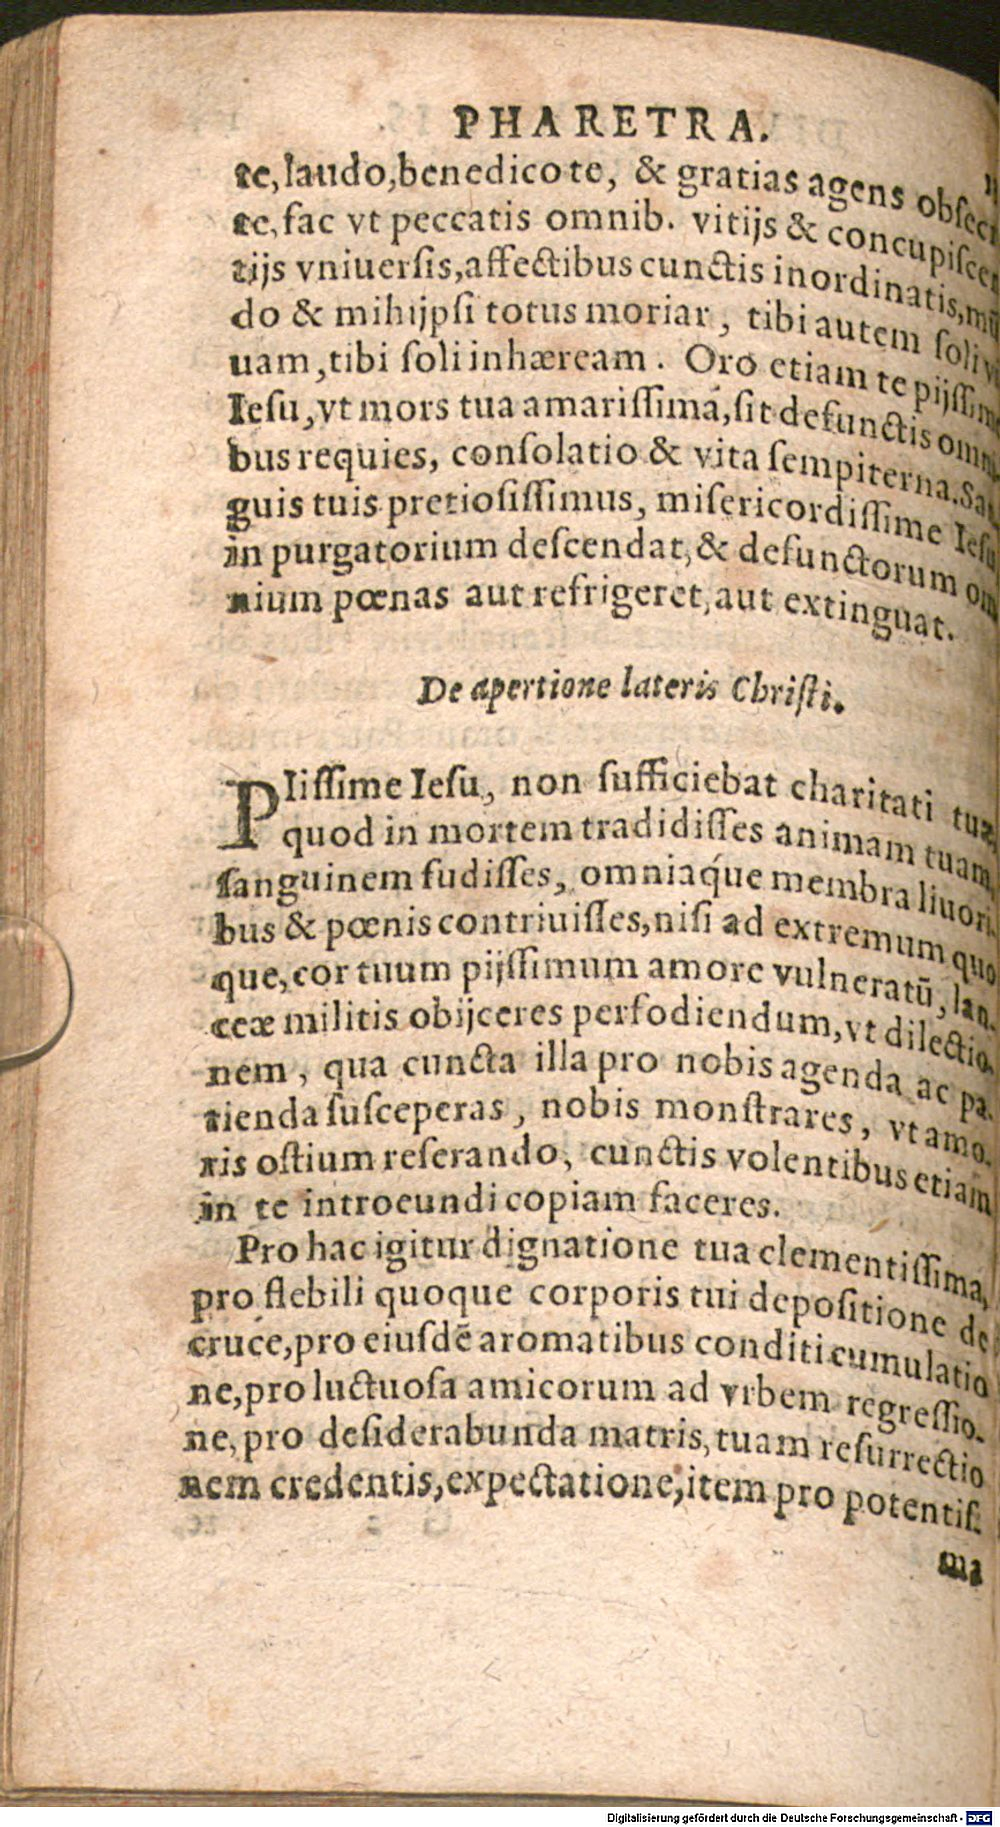 PHARETRA.
te, laudo, benedico te, & gratias agens obsecr
te, fac vt peccatis omnib. vitijs & concupiscen
tijs vniuersis, affectibus cunctis inordinatis, mũ
do & mihijpsi totus moriar, tibi autem soli vi
uam, tibi soli inhæream. Oro etiam te pijssime
Iesu, vt mors tua amarissima, sit defunctis omni
bus requies, consolatio & vita sempiterna. San
guis tuis pretiosissimus, misericordissime Iesu
in purgatorium descendat, & defunctorum om
nium pœnas aut refrigeret, aut extinguat.
De apertione lateris Christi.
PIissime Iesu, non sufficiebat charitati tuæ
quod in mortem tradidisses animam tuam,
sanguinem fudisses, omniaque membra liuori-
bus & pœnis contriuisses, nisi ad extremum quo
que, cor tuum pijssimum amore vulneratũ, lan-
ceæ militis obijceres perfodiendum, vt dilectio-
nem, qua cuncta illa pro nobis agenda ac pa-
tienda susceperas, nobis monstrares, vt amo-
ris ostium reserando, cunctis volentibus etiam
in te introeundi copiam faceres.
Pro hac igitur dignatione tua clementissima,
pro flebili quoque corporis tui depositione de
cruce, pro eiusdẽ aromatibus conditi cumulatio
ne, pro luctuosa amicorum ad vrbem regressio-
ne, pro desiderabunda matris, tuam resurrectio
nem credentis, expectatione, item pro potentis-
ma
Digitalisierung gefördert durch die Deutsche Forschungsgemeinschaft - DFG